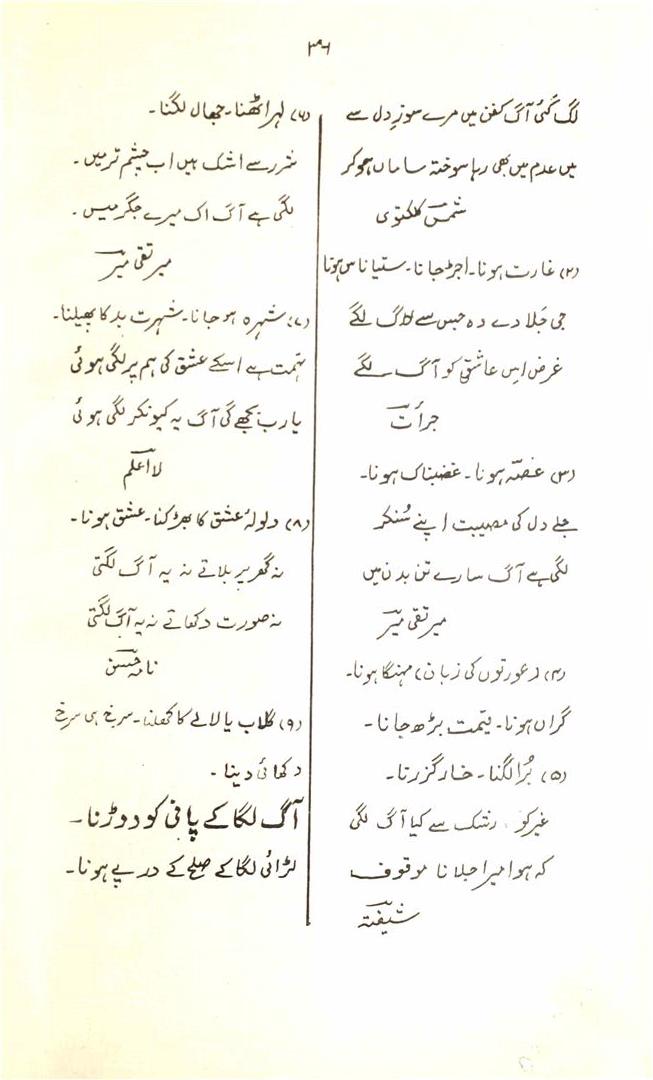 ۳۰۶
لگ گئی آگ کفن میں مرے سوزِ دل سے
میں عدم میں بھی رہا سوختہ ساماں ہوکر
شمسؔ کلکتوی
(۲) غارت ہونا۔ اجڑ جانا۔ ستیاناس ہونا
جی جَلا دے وہ جس سے لاگ لگے
غرض اس عاشقی کو آگ لگے
جرأتؔ
(۳) غصّہ ہونا۔ غضبناک ہونا۔
جلے دل کی مصیبت اپنے سُنکر
لگی ہے آگ سارے تن بدن میں
میر تقی میرؔ
(۴) (عورتوں کی زبان) مہنگا ہونا۔
گراں ہونا۔ قیمت بڑھ جانا۔
(۵) بُرا لگنا۔ خار گزرنا۔
غیر کو رشک سے کیا آگ لگی
کہ ہوا میرا جلانا موقوف
شیفتہؔ
(۶) لہر اٹھنا۔ جھال لگنا۔
شررسے اشک ہیں اب چشمِ تر میں۔
لگی ہے آگ اک میرے جگر میں۔
میر تقی میرؔ
(۷) شہرہ ہو جانا۔ شہرت بد کا پھیلنا۔
تہمت ہے اسکے عشق کی ہم پر لگی ہوئی
یارب بجھے گی آگ یہ کیونکر لگی ہوئی
لااعلم
(۸) ولولۂ عشق کا بھڑکنا۔ عشق ہونا۔
نہ گھر پر بلاتے نہ یہ آگ لگتی
نہ صورت دکھاتے نہ یہ آگ لگتی
(۹) گلاب یا لالے کا کھلنا۔ سرخ ہی سرخ
دکھائی دینا۔
آگ لگا کے پانی کو دوڑنا۔
لڑائی لگا کے صلح کے درپے ہونا۔